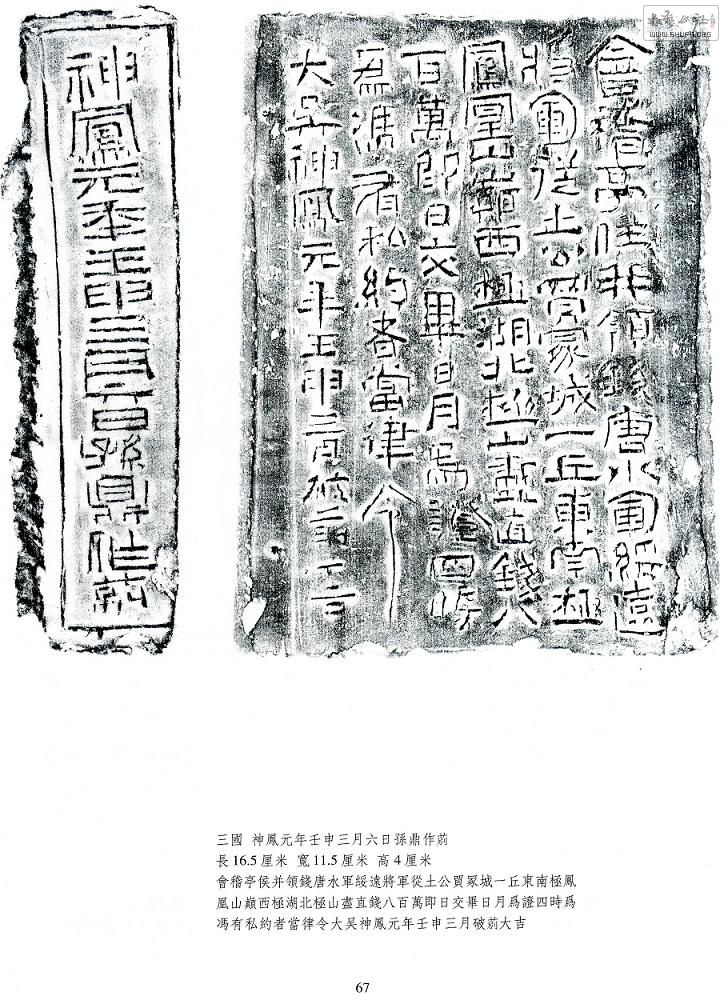 神鳳元年壬申三月六日孫鼎作莂
會稽亭侯并領錢唐水軍綏遠
將軍從土公買冢城一丘東南極
鳳凰山巔西極湖北極山盡直錢八
百萬即日交畢日月爲證四時
爲馮有私約者當律令
大吳神鳳元年壬申三月破莂大吉
三國 神鳳元年壬申三月六日孫鼎作莂
長 16.5 厘米 寬 11.5 厘米 高 4 厘米
會稽亭侯并領錢唐水軍綏遠將軍從土公買冢城一丘東南極鳳
凰山巔西極湖北極山盡直錢八百萬即日交畢日月爲證四時爲
馮有私約者當律令大吴神鳳元年壬申三月破莂大吉
67
WWW.SHUFA.ORG